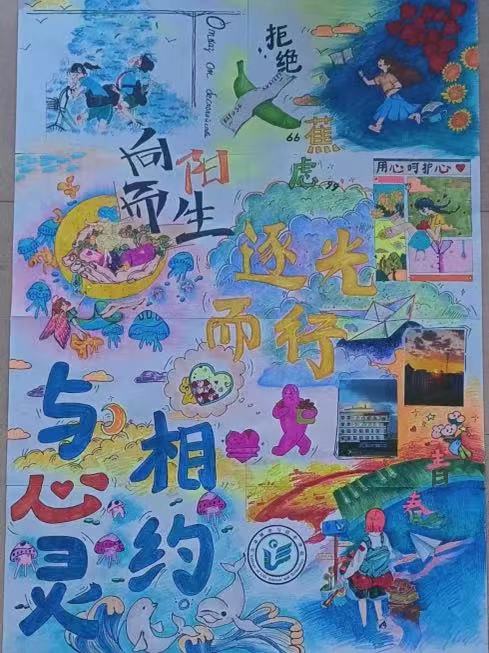 拒绝
“蕉
虑”
向阳
而生
用心呵护心
逐光
而行
与心灵
相约
青春